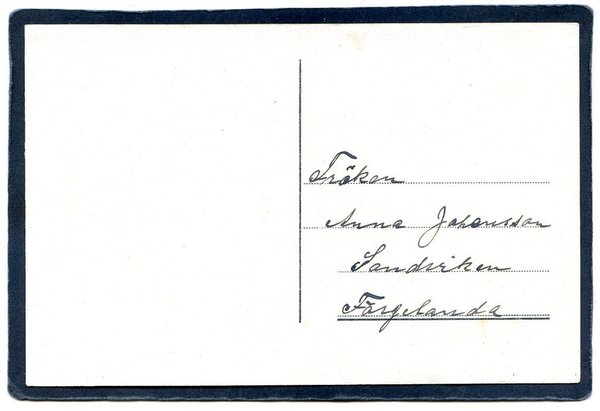 Fröken
Anna Johansson
Sandviken
Färgelanda